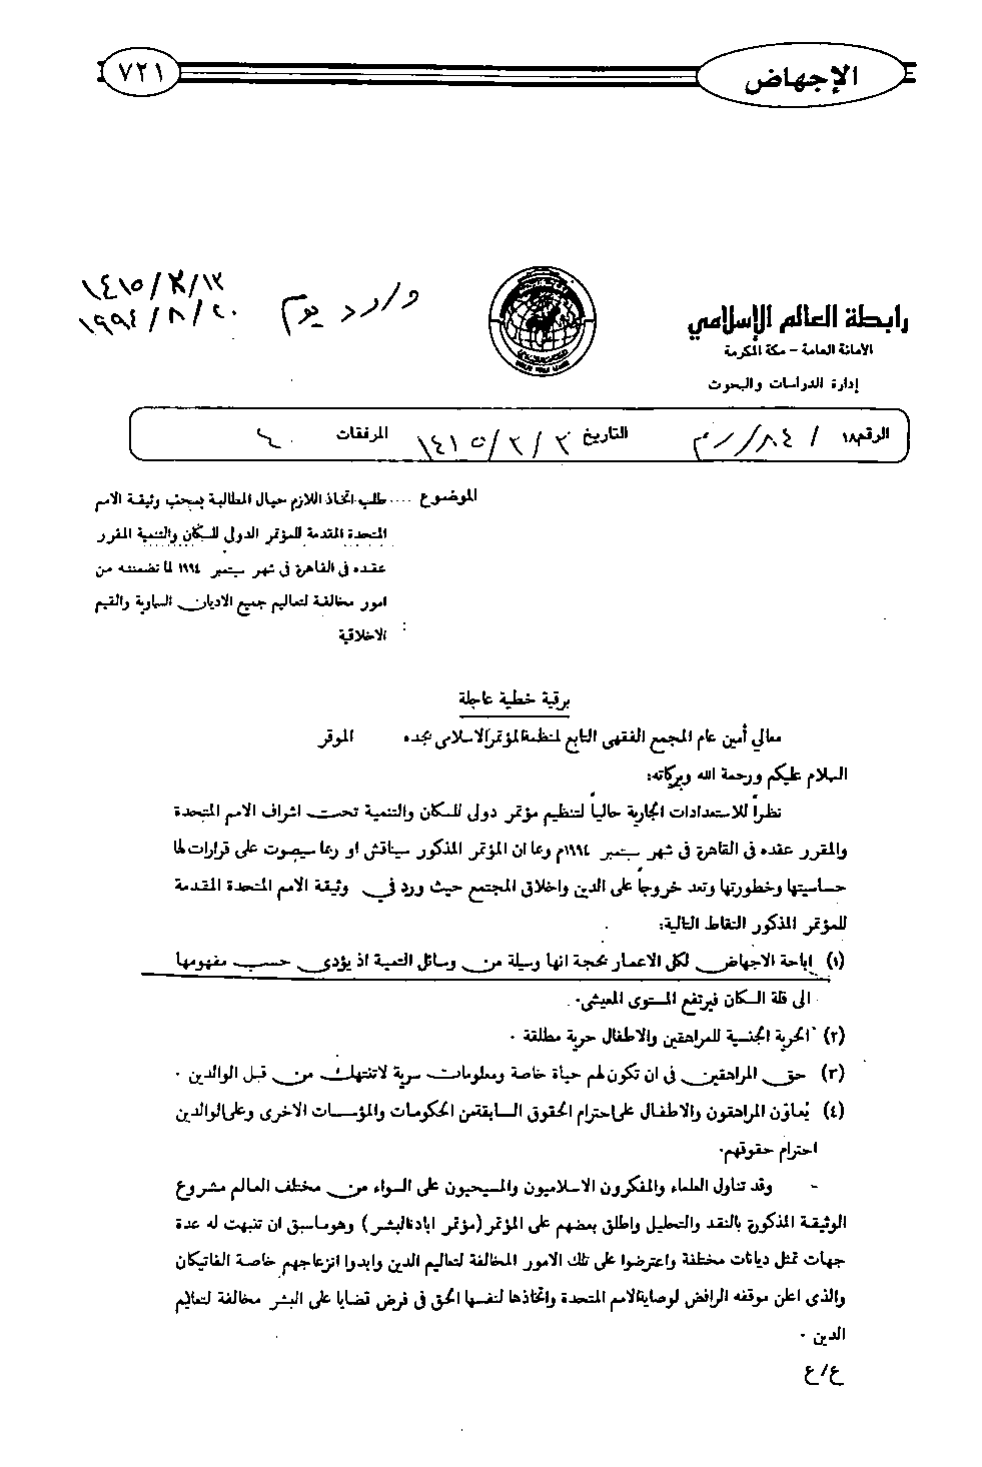 الإجهاض
٧٢١
١٤١٥/٣/١٣
١٩٩٤/٨/٢٠
وارد يوم
رابطة العالم الإسلامي
الأمانة العامة - مكة المكرمة
إدارة الدراسات والبحوث
الرقم١٨ / ٨٤/ التاريخ ١٤١٥/٣/٣ المرفقات
الموضوع .... طلب اتخاذ اللازم حيال المطالبة بسحب وثيقة الامم
المتحدة المقدمة للمؤتمر الدولى للسكان والتنمية المقرر
عقده فى القاهرة فى شهر سبتمبر ١٩٩٤ لما تضمنته من
امور مخالفة لتعاليم جميع الاديان السماوية والقيم
الاخلاقية
برقية خطية عاجلة
معالي أمين عام المجمع الفقهى التابع لمنظمةالمؤتمرالاسلامى بجده الموقر
السلام عليكم ورحمة الله وبركاته:
نظراً للاستعدادات الجارية حالياً لتنظيم مؤتمر دولى للسكان والتنمية تحت اشراف الامم المتحدة
والمقرر عقده فى القاهرة فى شهر سبتمبر ١٩٩٤م وبما ان المؤتمر المذكور سيناقش او ربما سيصوت على قرارات لها
حساسيتها وخطورتها وتعد خروجاً على الدين واخلاق المجتمع حيث ورد في وثيقة الامم المتحدة المقدمة
للمؤتمر المذكور النقاط التالية:
(١) إباحة الاجهاض لكل الاعمار بحجة انها وسيلة من وسائل التنمية اذ يؤدى حسب مفهومها
الى قلة السكان فيرتفع المستوى المعيشى.
(٢) الحرية الجنسية للمراهقين والاطفال حرية مطلقة .
(٣) حق المراهقين فى ان تكون لهم حياة خاصة ومعلومات سرية لاتنتهك من قبل الوالدين .
(٤) يُعاون المراهقون والاطفال على احترام الحقوق السابقةمن الحكومات والمؤسسات الاخرى وعلى الوالدين
احترام حقوقهم.
- وقد تناول العلماء والمفكرون الاسلاميون والمسيحيون على السواء من مختلف العالم مشروع
الوثيقة المذكورة بالنقد والتحليل واطلق بعضهم على المؤتمر (مؤتمر ابادةالبشر) وهوماسبق ان تنبهت له عدة
جهات تمثل ديانات مختلفة واعترضوا على تلك الامور المخالفة لتعاليم الدين وابدوا انزعاجهم خاصة الفاتيكان
والذى اعلن موقفه الرافض لوصايةالامم المتحدة واتخاذها لنفسها الحق فى فرض قضايا على البشر مخالفة لتعاليم
الدين .
ع/ع